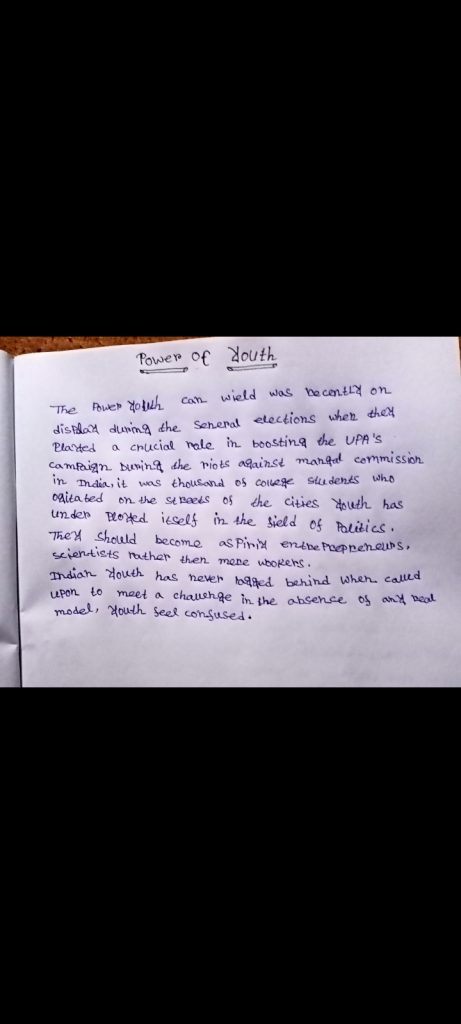 Power of Youth
The Power Youth can wield was recently on
display during the general elections when they
Played a crucial role in boosting the UPA's
campaign During the riots against mangal commission
in India, it was thousand of college students who
agitated on the streets of the cities Youth has
under Played itself in the field of Politics.
They should become as Piriy entrepreneurs,
scientists rather then mere workers.
Indian Youth has never lagged behind when called
upon to meet a challenge in the absence of any real
model, Youth feel confused.